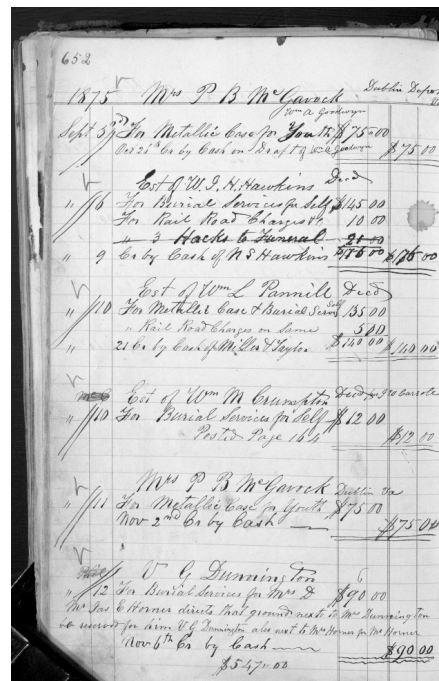 652
1875 Mrs P B McGavock Dublin Depo
Wm A Goodwyn
Sept 3rd For Metallic Case for Youth $75.00
Oct 26th Cr by Cash on Draft of Wm A Goodwyn $75 00
Est of W. J. H. Hawkins Decd
" 6 For Burial Services for Self $145 00
For Rail Road Charges 10 00
" 3 Hacks to Funeral 21 00
" 9 Cr by Cash of N S Hawkins $176 00 $176 00
Est of Wm L Pannill Decd
" 10 For Metallic Case & Burial Servs Self 135 00
" Rail Road Charges on Same 5 00
$140 00
" 21 Cr by Cash of Miller & Taylor $140 00
Est of Wm M Crumpton Decd
" 10 For Burial Services for Self $12 00
Posted Page 164 $12 00
Mrs P B McGavock Dublin Va
" 11 For Metallic Case for Youth $75 00
Nov 2nd Cr by Cash $75 00
V G Dunnington
" 12 For Burial Services for Mrs D $90 00
Mr Jas E Horner directs that ground next to Mrs Dunnington
be reserved for him V G Dunnington also next to Mrs Horner for Mr Horner
Nov 6th Cr by Cash $90 00
$547.00